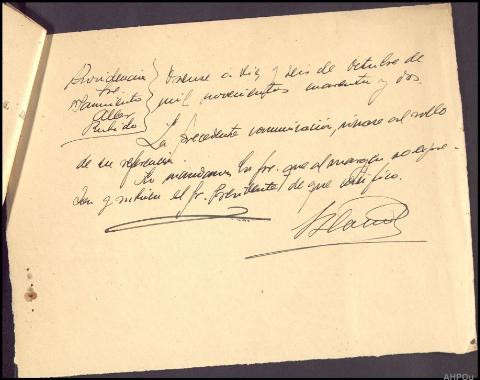 Providencia
Sres.
Aller
Pulido
Orense a diez y seis de Octubre de
mil novecientos cuarenta y dos.
La precedente comunicación, únase al rollo
de su referencia.
Lo mandaron los Sres. que al margen se expre-
san y rubrica el Sr. Presidente, de que certifico.
AHPOu